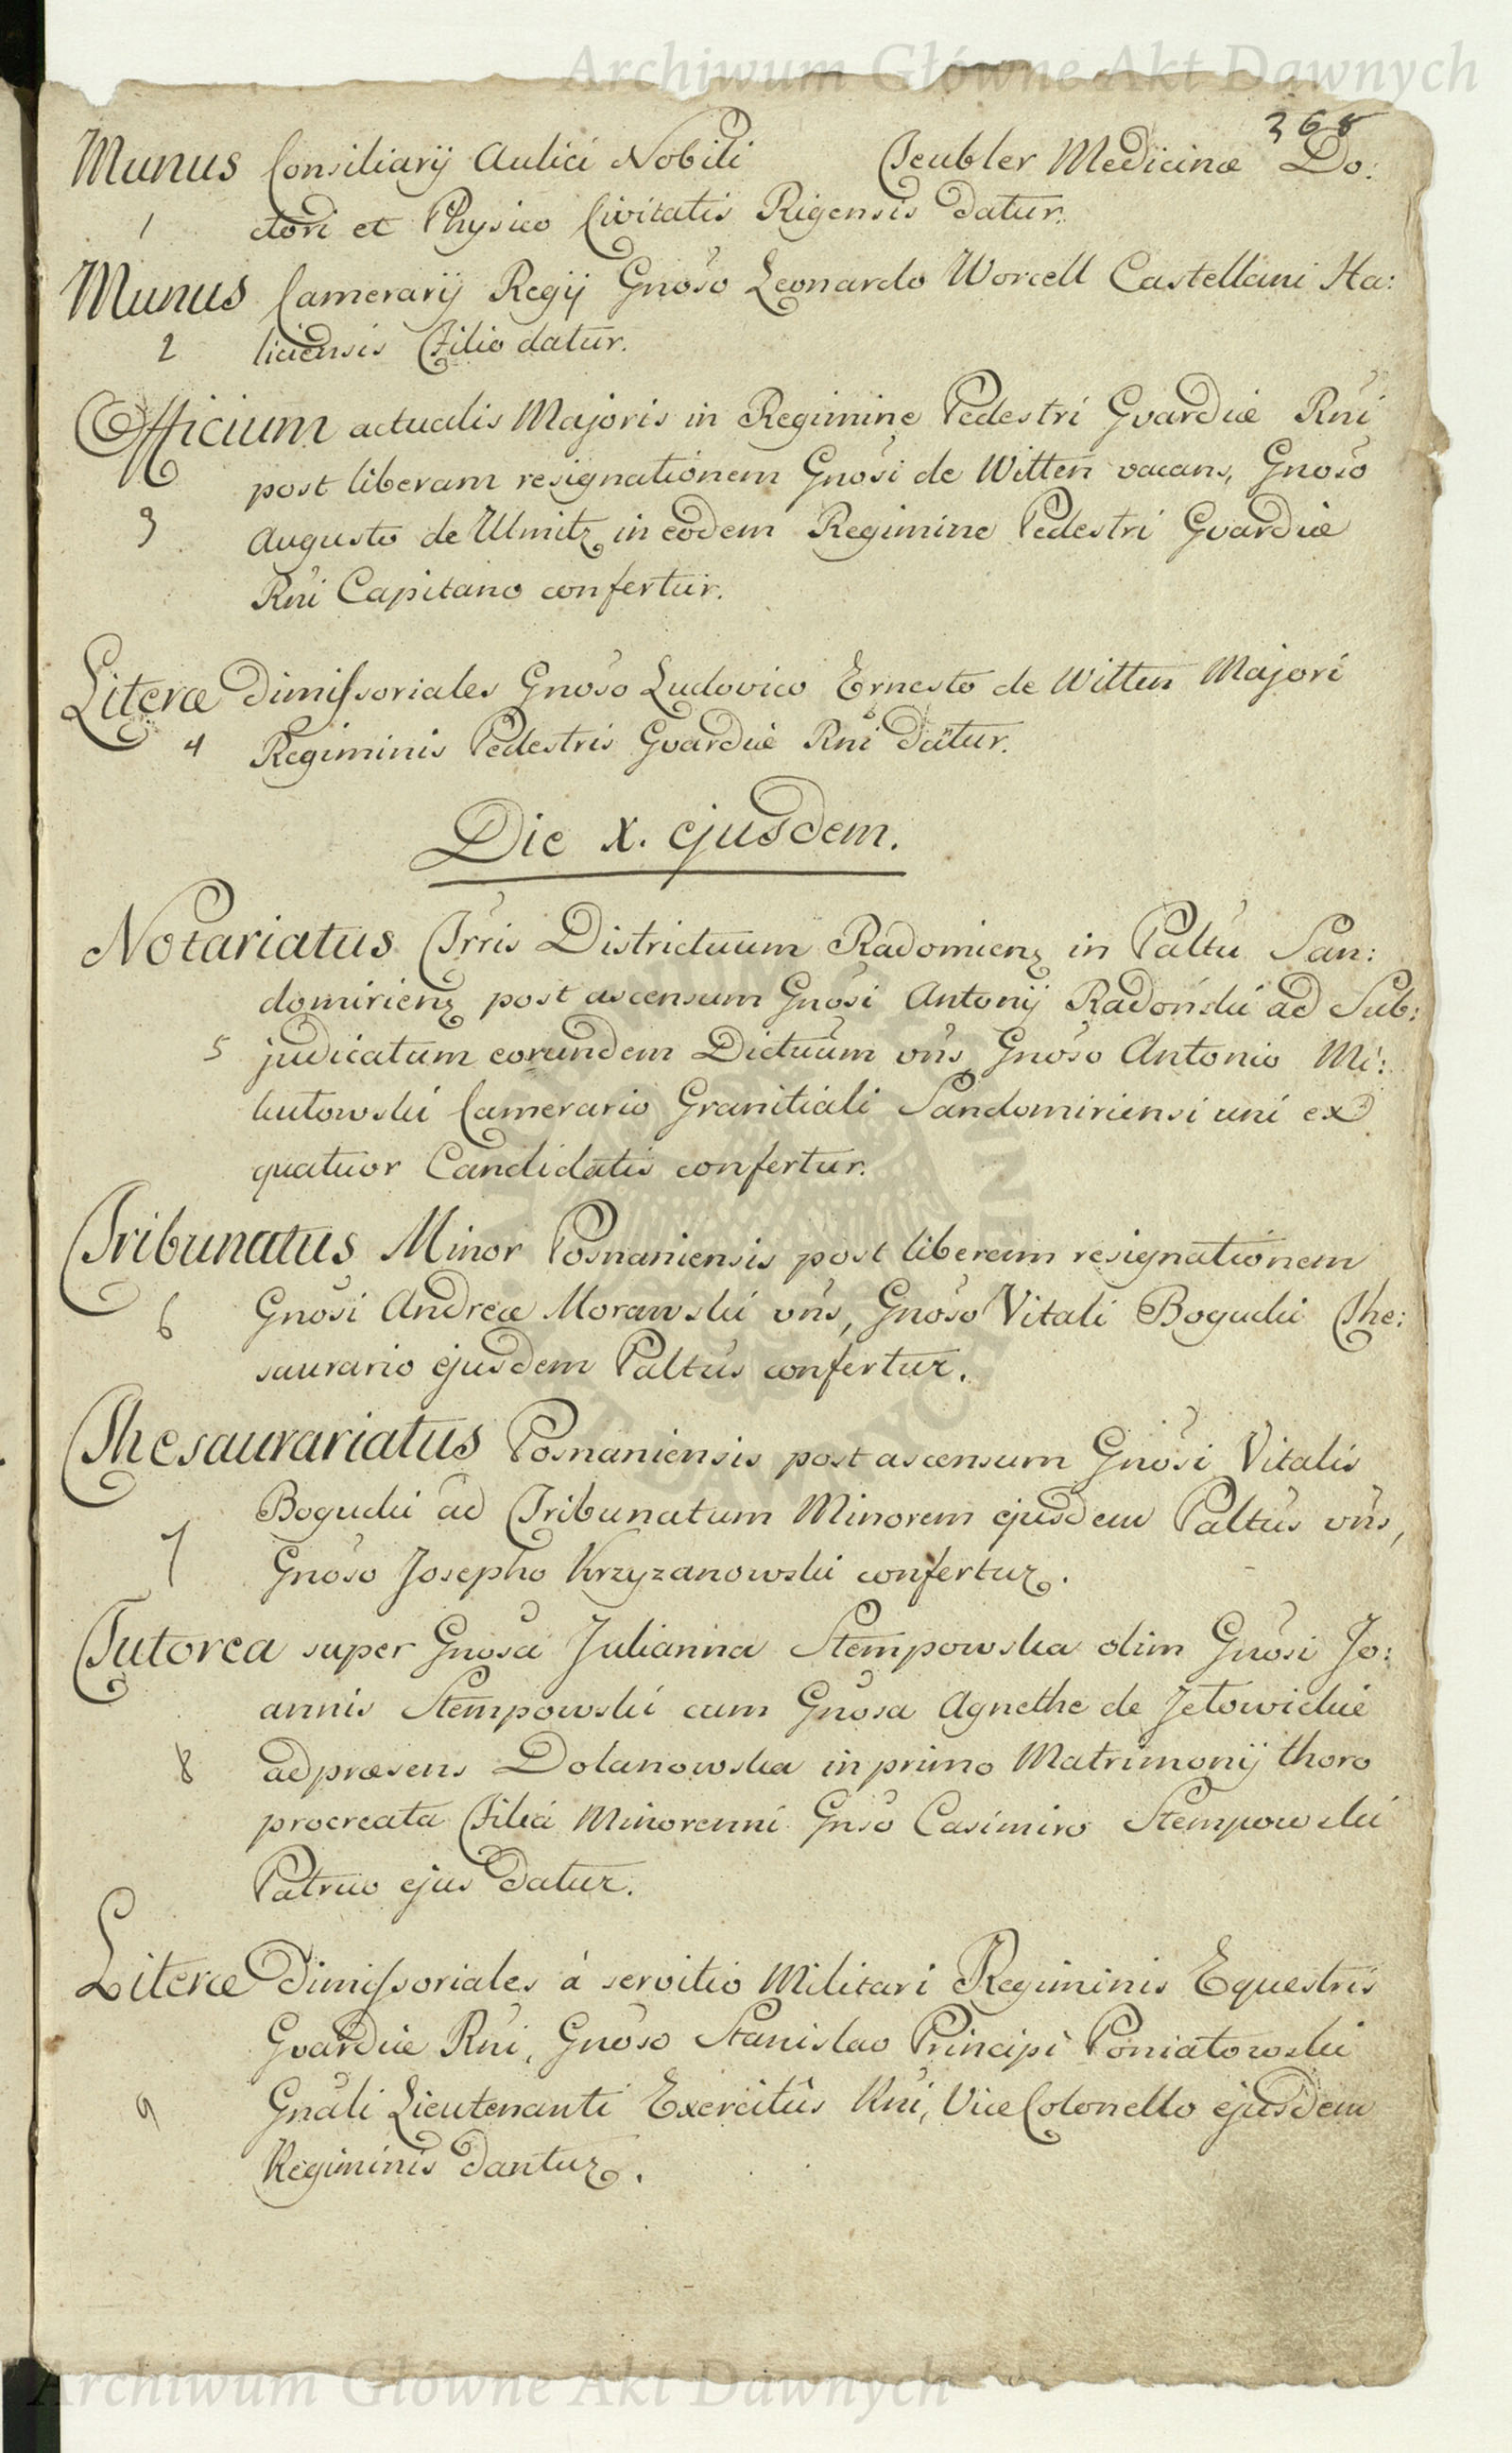 Archiwum Główne Akt Dawnych
368
Munus Consiliarij Aulici Nobili Teubler Medicinæ Do:
1 ctori et Physico Civitatis Rigensis datur.
Munus Camerarij Regij Gnoso Leonardo Worcell Castellani Ha:
2 liciensis Filio datur.
Officium actualis Majoris in Regimine Pedestri Gvardiæ Rni
post liberam resignationem Gnosi de Witten vacans, Gnoso
3 Augusto de Ulmitz in eodem Regimine Pedestri Gvardiæ
Rni Capitano confertur.
Literæ dimissoriales Gnoso Ludovico Ernesto de Witten Majori
4 Regiminis Pedestris Gvardiæ Rni datur.
Die X. ejusdem.
Notariatus Trris Districtuum Radomienz in Paltu San:
domirienz post ascensum Gnosi Antonij Radoński ad Sub:
5 judicatum eorundem Dictuum vns, Gnoso Antonio Mi:
kutowski Camerario Granitiali Sandomiriensi uni ex
quatuor Candidatis confertur.
Tribunatus Minor Posnaniensis post liberam resignationem
6 Gnosi Andreæ Morawski vns, Gnoso Vitali Bogucki The:
saurario ejusdem Paltus confertur.
Thesaurariatus Posnaniensis post ascensum Gnosi Vitalis
Bogucki ad Tribunatum Minorem ejusdem Paltus vns,
7 Gnoso Josepho Krzyzanowski confertur.
Tutorea super Gnosa Julianna Stempowska olim Gnosi Jo:
annis Stempowski cum Gnosa Agnethe de Jełowickie
8 adpræsens Dolanowska in primo Matrimonij thoro
procreata Filia Minorenni Gnso Casimiro Stempowski
Patruo ejus datur.
Literæ Dimissoriales à servitio Militari Regiminis Equestris
Gvardiæ Rni, Gnoso Stanislao Principi Poniatowski
9 Gnali Lieutenanti Exercitûs Rni, Vice Colonello ejusdem
Regiminis dantur.
Archiwum Główne Akt Dawnych